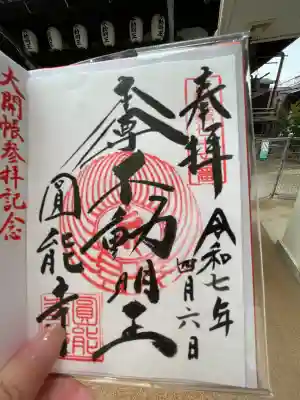 奉拝
令和七年
四月六日
本尊不動明王
圓能寺
大開帳参拝記念